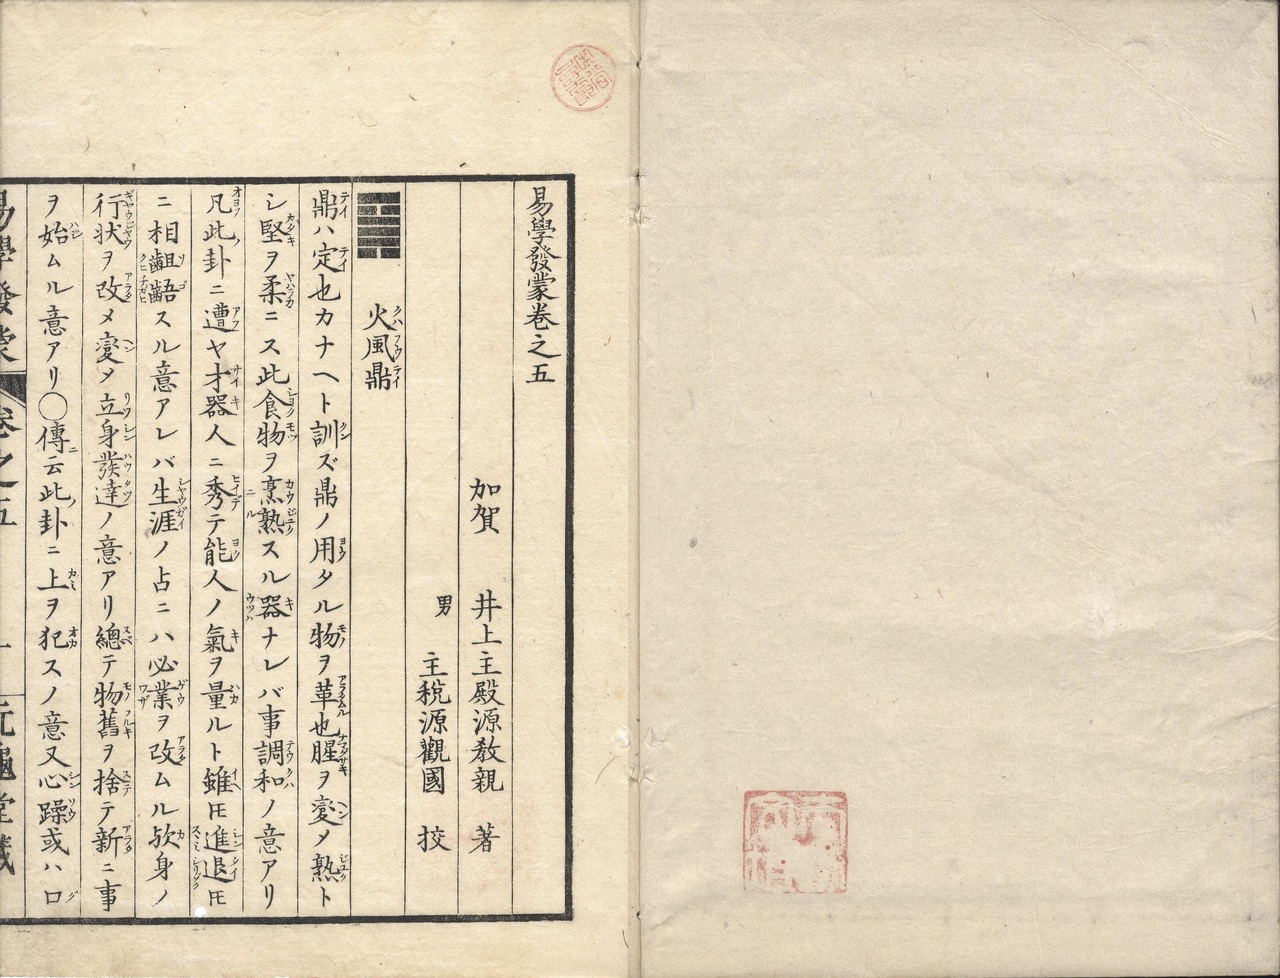 易學發蒙卷之五
加賀 井上主殿源教親 著
男 主稅源觀國 挍
火風鼎
鼎ハ定也カナヘト訓ズ鼎ノ用タル物ヲ革也腥ヲ變メ熟ト
シ堅ヲ柔ニス此食物ヲ烹熟スル器ナレバ事調和ノ意アリ
凡此卦ニ遭ヤ才器人ニ秀テ能人ノ氣ヲ量ルト雖𪜈進退𪜈
ニ相齟齬スル意アレバ生涯ノ占ニハ必業ヲ改ムル欤身ノ
行狀ヲ改メ變メ立身發達ノ意アリ總テ物舊ヲ捨テ新ニ事
ヲ始ムル意アリ○傳云此卦ニ上ヲ犯スノ意又心躁或ハ口
易學發蒙 卷之五 一 元龜堂藏